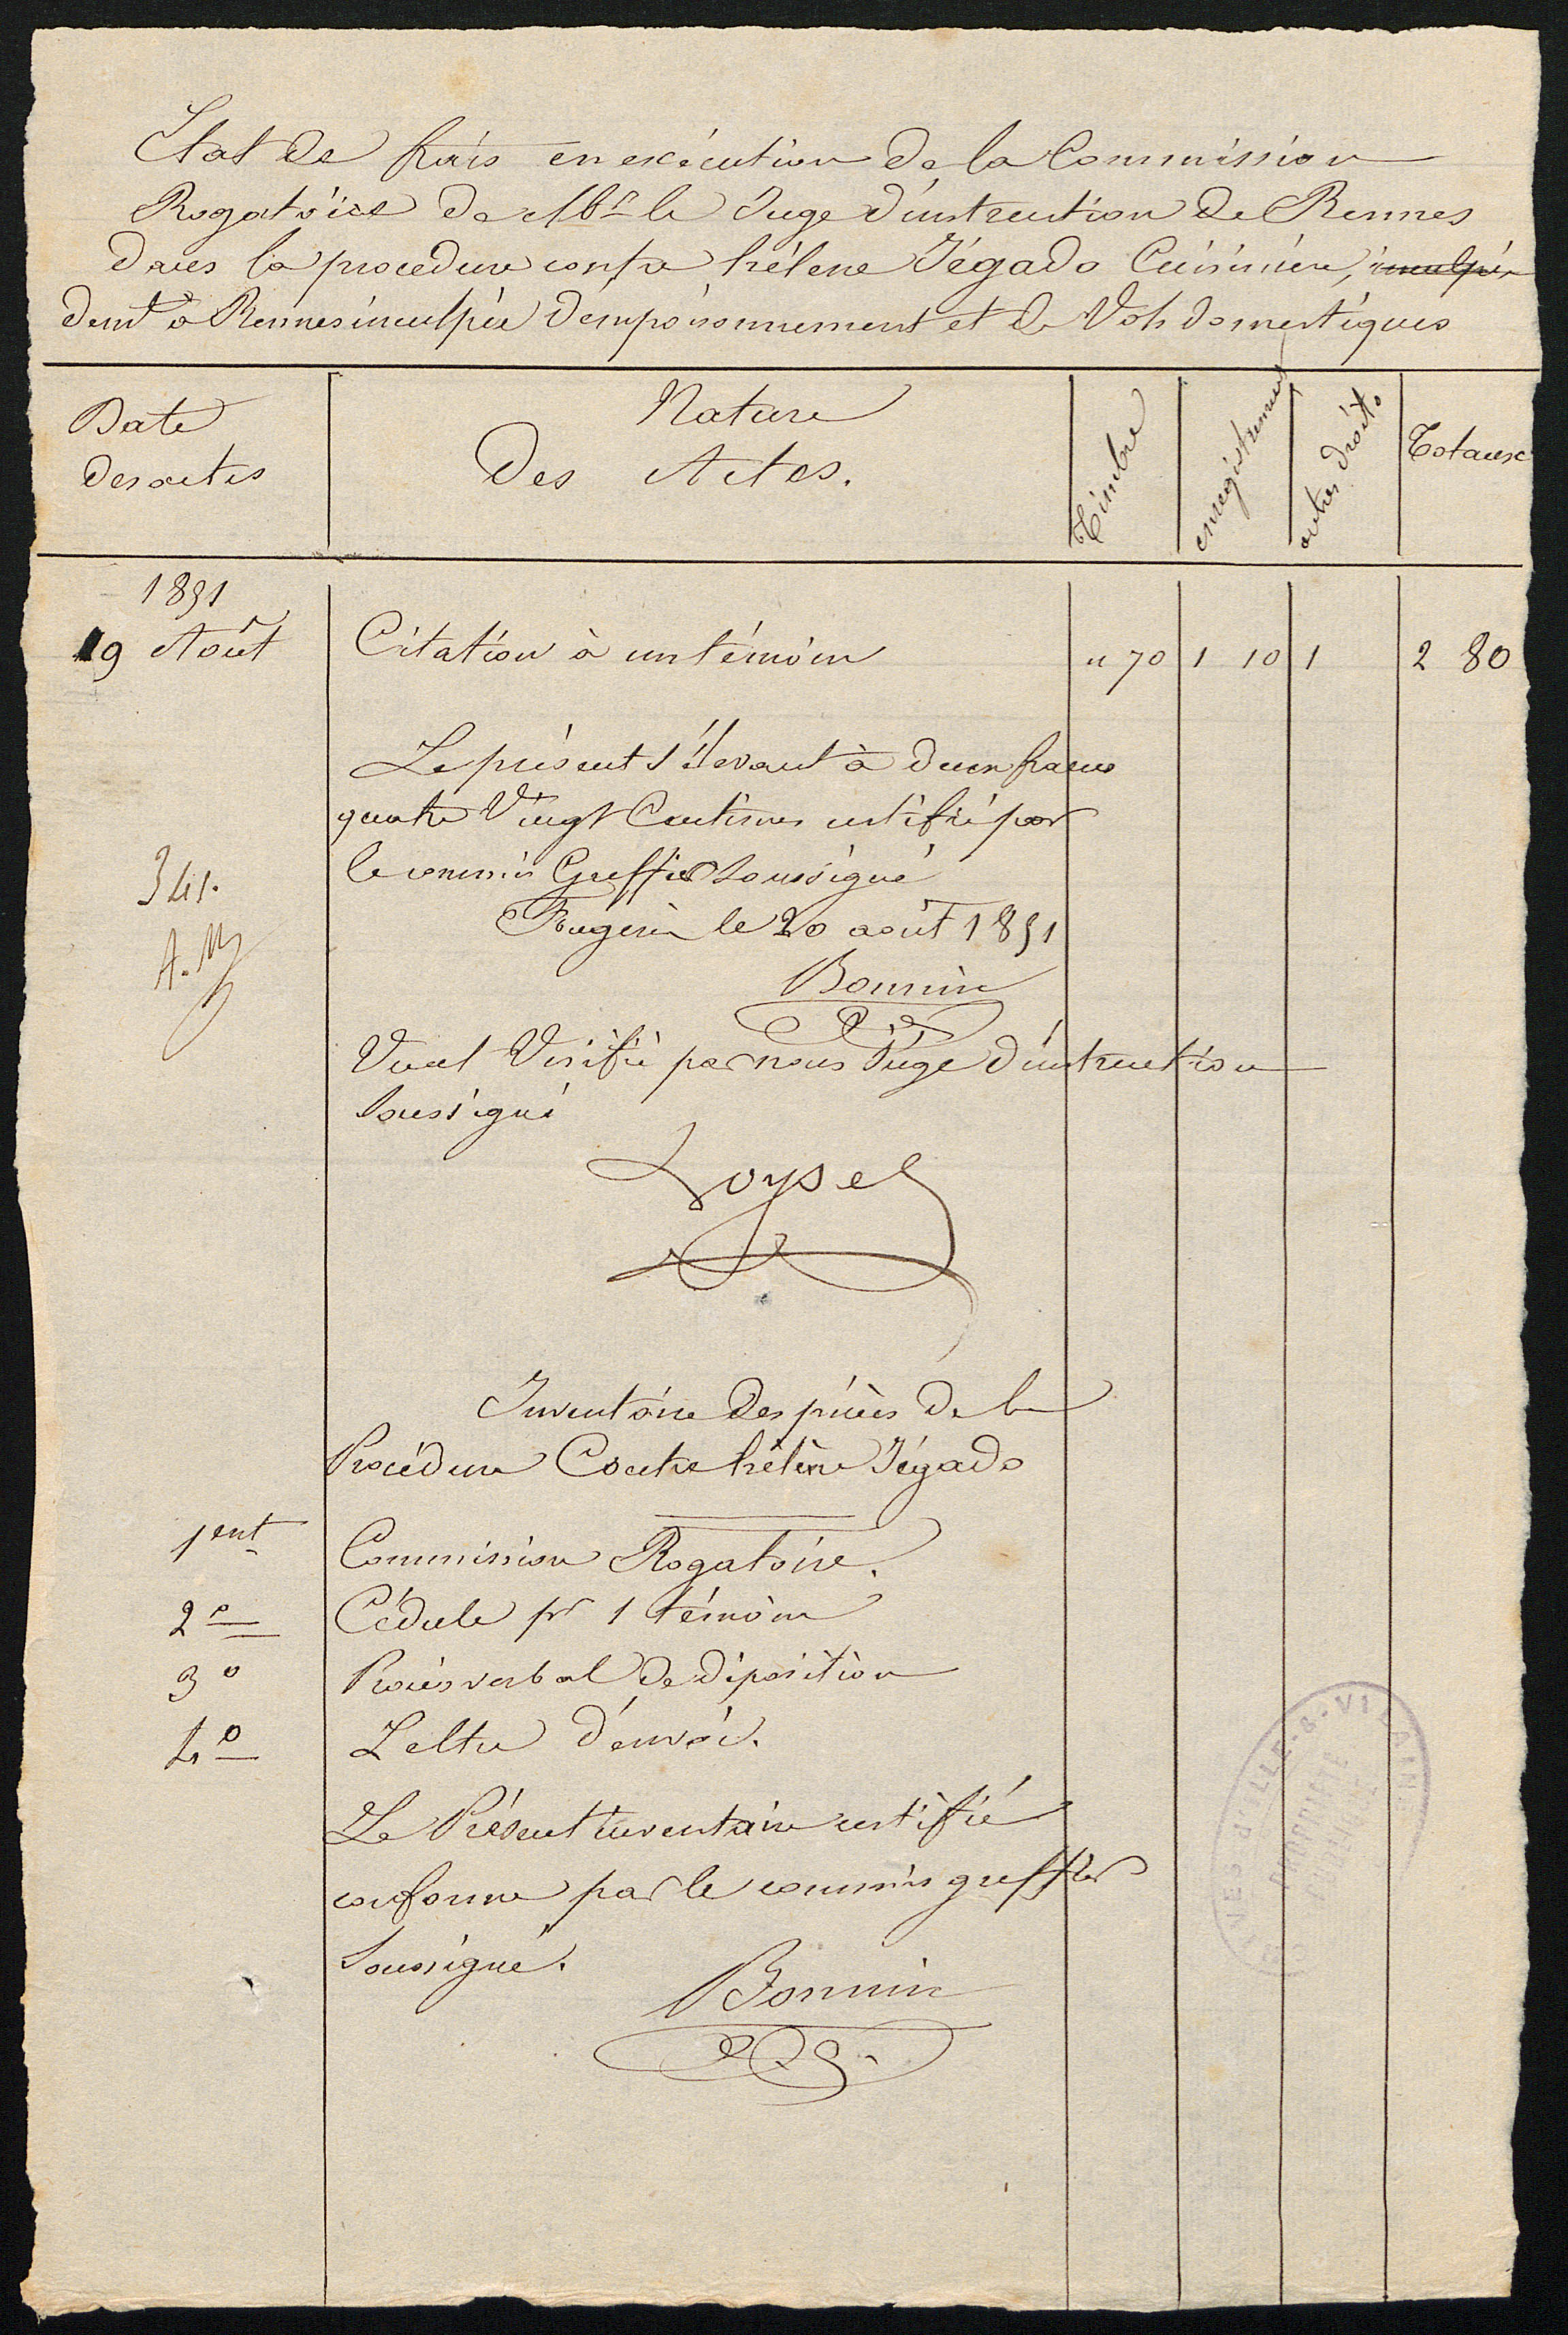 Etat de frais en exécution de la Commission
Rogatoire de Mr le Juge d'instruction de Rennes
dans la procedure contre hélene Jégado Cuisinière, inculpée
demt à Rennes inculpée d'empoisonnement et de Vols domestiques
Date
des actes
Nature
Des Actes.
Timbre
enregistrement
autres droits
Totaux
1851
19 Août Citation à un témoin " 70 1 10 1 2 80
Le présent s'élevant à deux francs
quatre Vingt Centimes certifié par
le commis Greffier soussigné
Fougères le 20 août 1851
Bonnin
341.
A. M
Vu et Vérifié par nous Juge d'instruction
soussigné
Loysel
Inventaire des pièces de la
Procédure Contre hélène Jégado
1ent Commission Rogatoire.
2o Cédule pr 1 témoin
3o Procès verbal de déposition
4o Lettre d'envoi.
Le Présent inventaire certifié
conforme par le commis greffier
soussigné.
Bonnin
D'ILLE-&-VILAINE
PROPRIÉTÉ
PUBLIQUE